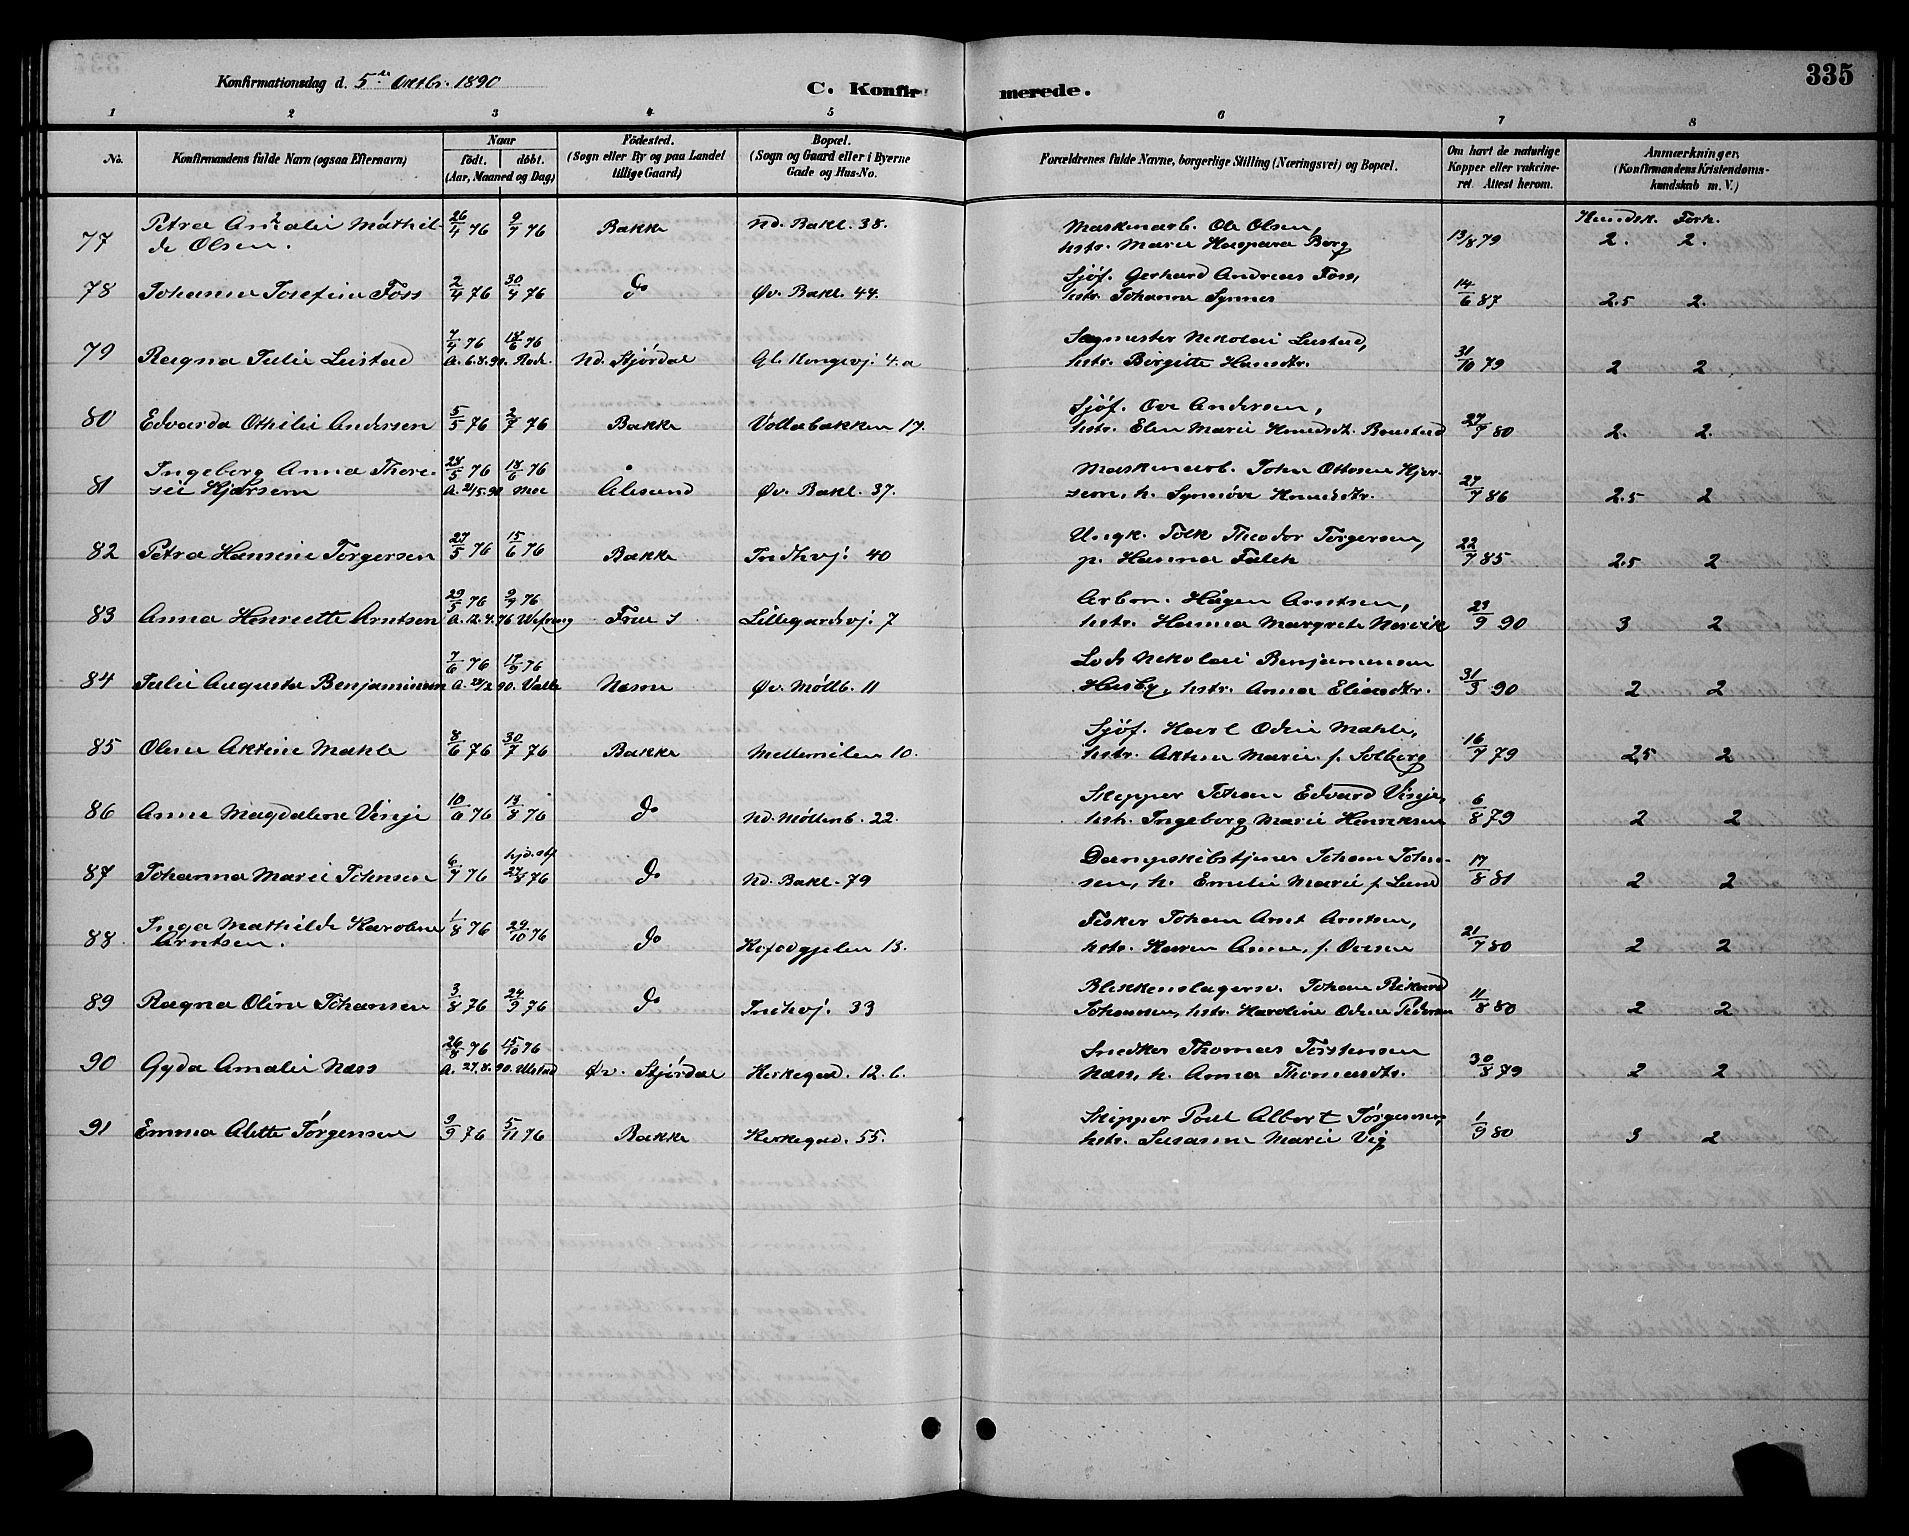 Konfirmationsdag d. 5te Oktbr. 1890
C. Konfirmerede.
335
1 2 3 4 5 6 7 8
No.
Konfirmandens fulde Navn (ogsaa Efternavn)
Naar
födt. döbt.
(Aar, Maaned og Dag)
Födested.
(Sogn eller By og paa Landet
tillige Gaard)
Bopæl.
(Sogn og Gaard eller i Byerne
Gade og Hus-No.
Forældrenes fulde Navne, borgerlige Stilling (Næringsvei) og Bopæl.
Om havt de naturlige
Kopper eller vakcine-
ret. Attest herom.
Anmærkninger.
(Konfirmandens Kristendoms-
kundskab m. V.)
Kundsk. Forh.
77 Petra Amalie Mathil- 26/4 76 9/7 76 Bakke Nd. Bakl. 38. Maskinarb. Ole Olsen, 13/8 79 2. 2.
de Olsen. hstr. Marie Kaspara Borg
78 Johanna Josefine Foss 2/4 76 30/4 76 Do Øv. Bakl. 44. Sjöf. Gerhard Andreas Foss, 14/6 87 2.5 2.
hstr. Johanna Synnes
79 Ragna Julie Lustad 7/4 76 18/6 76 Nd. Stjördal Gl. Kongevj. 4.a Sagmester Nikolai Lustad, 31/10 79 2 2
A. 6.8.90. hstr. Birgitte Hansdtr.
80 Edvarda Othilie Andersen 5/5 76 2/7 76 Bakke Vollabakken 17. Sjöf. Ove Andersen, 27/7 80 2. 2.
hstr. Elen Marie
81 Ingeborg Anna There- 28/5 76 18/6 76 Ålesund Øv. Bakl. 37. Maskinarb. John Ottosen Hjör- 27/7 86 2.5 2
sie Hjörsem A. 21/5.90 Moe sem, h. Synnöve Knudsdtr.
82 Petra Hansine Torgersen 27/5 76 15/6 76 Bakke Indhvj. 40 Ungk. Falk Theodor Torgersen, 22/7 85 2.5 2
p. Hanna Falch
83 Anna Henriette Arntsen 29/5 76 9/7 76 Frue S Lillegardsvj. 7 Arbm. Hågen Arntsen, 23/9 90 3 2
hstr. Hanna Margrete
84 Julie Augusta Benjaminsen 7/6 76 17/9 76 Nesne Øv. Möllb. 11 Lods Nikolai Benjaminsen 31/3 90 2 2
Husby, hstr. Anna Eliasdtr.
85 Oline Aktine Mahle 8/6 76 30/7 76 Bakke Mellemilen 10. Sjöf. Karl Odin Mahle, 16/7 79 2.5 2
hstr. Aktine Marie f. Solberg
86 Anne Magdalene Vinje 10/6 76 13/8 76 Do Nd. Möllenb. 22. Skipper Johan Edvard Vinje, 6/8 79 2 2
hstr. Ingeborg Marie Henriksen
87 Johanna Marie Johnsen 6/7 76 27/8 76 Do Nd. Bakl. 79 Dampskibstjener Johan John- 17/8 81 2 2
sen, h. Emelie Marie f. Lund
88 Inga Mathilde Karoline 1/8 76 29/10 76 Do Kefodgjelen 13. Fisker Johan Arnt Arntsen, 21/7 80 2 2
Arntsen. hstr. Karen Anna, f. Ovesen
89 Ragna Oline Johansen 3/8 76 24/9 76 Do Indhvj. 33 Blikkenslagersv. Johan Rikard 11/8 80 2 2
Johansen, hstr. Karoline Odine Pedersen
90 Gyda Amalie Næss 26/8 76 15/10 76 Øv. Stjördal Kirkegad. 12.b. Snedker Thomas Torstensen 30/8 79 2 2
A. 27.8.90. Ulstad Næss, h. Anna Thomasdtr.
91 Emma Alette Jörgensen 9/9 76 5/11 76 Bakke Kirkegad. 55. Skipper Poul Albert Jörgensen, 1/9 80 3 2
hstr. Susanne Marie Vig